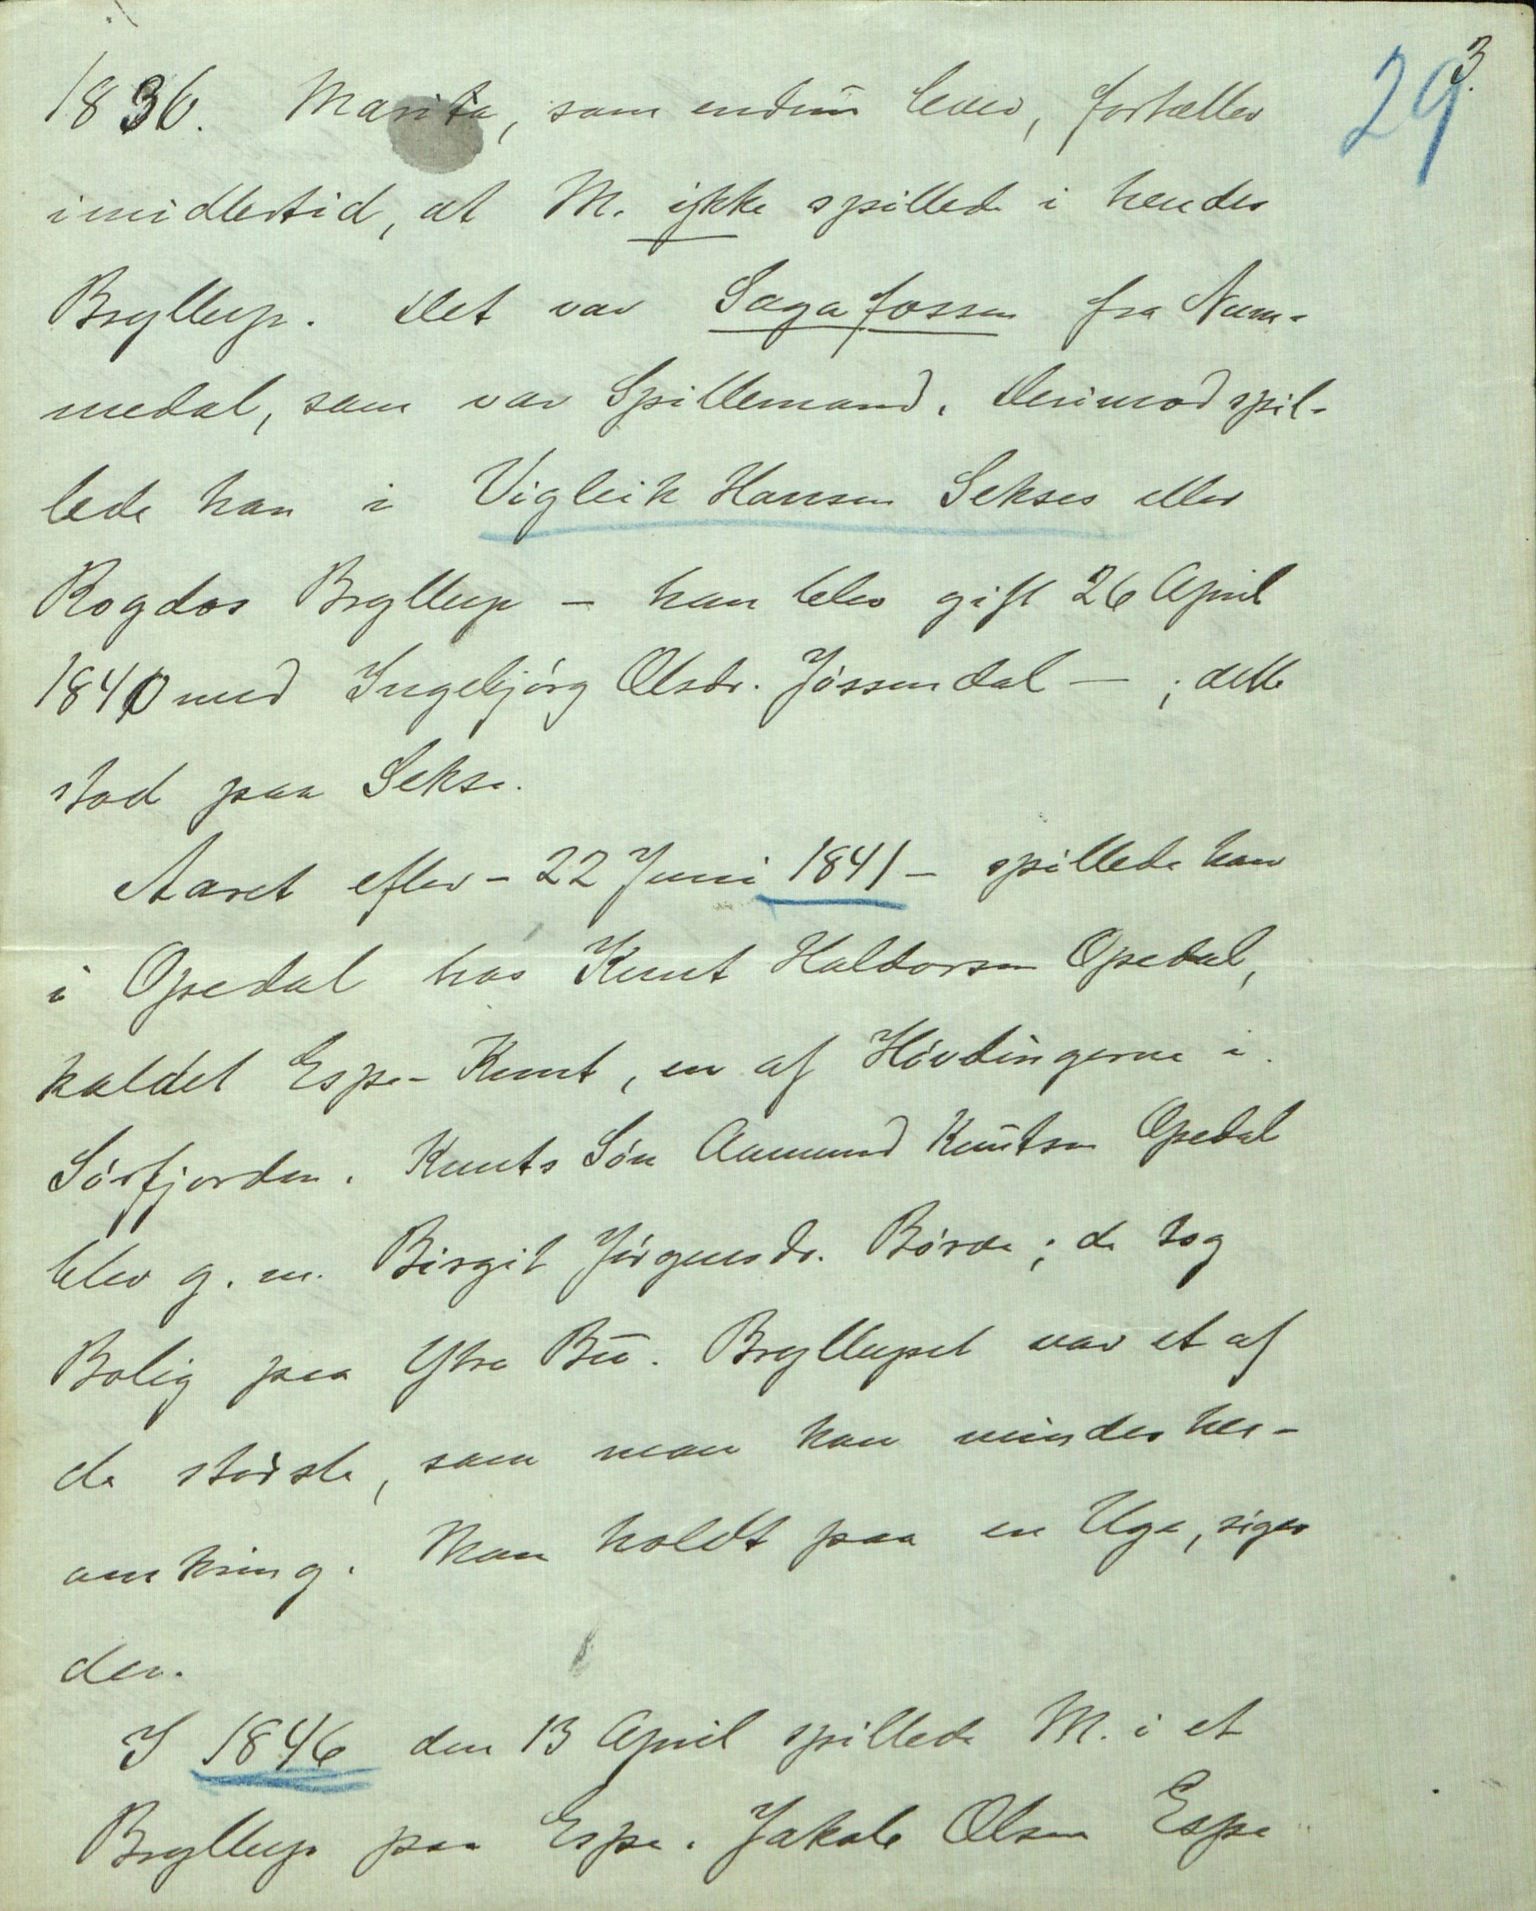 3.
29
1836. Marita, som endnu lever, fortæller
imidlertid, at M. ikke spillede i hendes
Bryllup. Det var Sagafossen fra Num-
medal, som var Spillemand. Derimod spil-
lede han i Vigleik Hansen Sekses eller
Rogdos Bryllup – han blev gift 26 April
1840 med Ingebjørg Olsdr. Jøssendal – ; dette
stod paa Sekse.
Aaret efter – 22 Juni 1841 – spillede han
i Opedal hos Knut Haldorsen Opedal,
kaldet Espe-Knut, en af Høvdingerne i
Sørfjorden. Knuts Søn Aamund Knutsen Opedal
blev g. m. Birgit Jørgensdr. Børve ; de tog
Bolig paa Ytre Bu. Bryllupet var et af
de største, som man kan mindes her-
omkring. Man holdt paa en Uge, siges
der.
I 1846 den 13 April spillede M. i et
Bryllup paa Espe. Jakob Olsen Espe